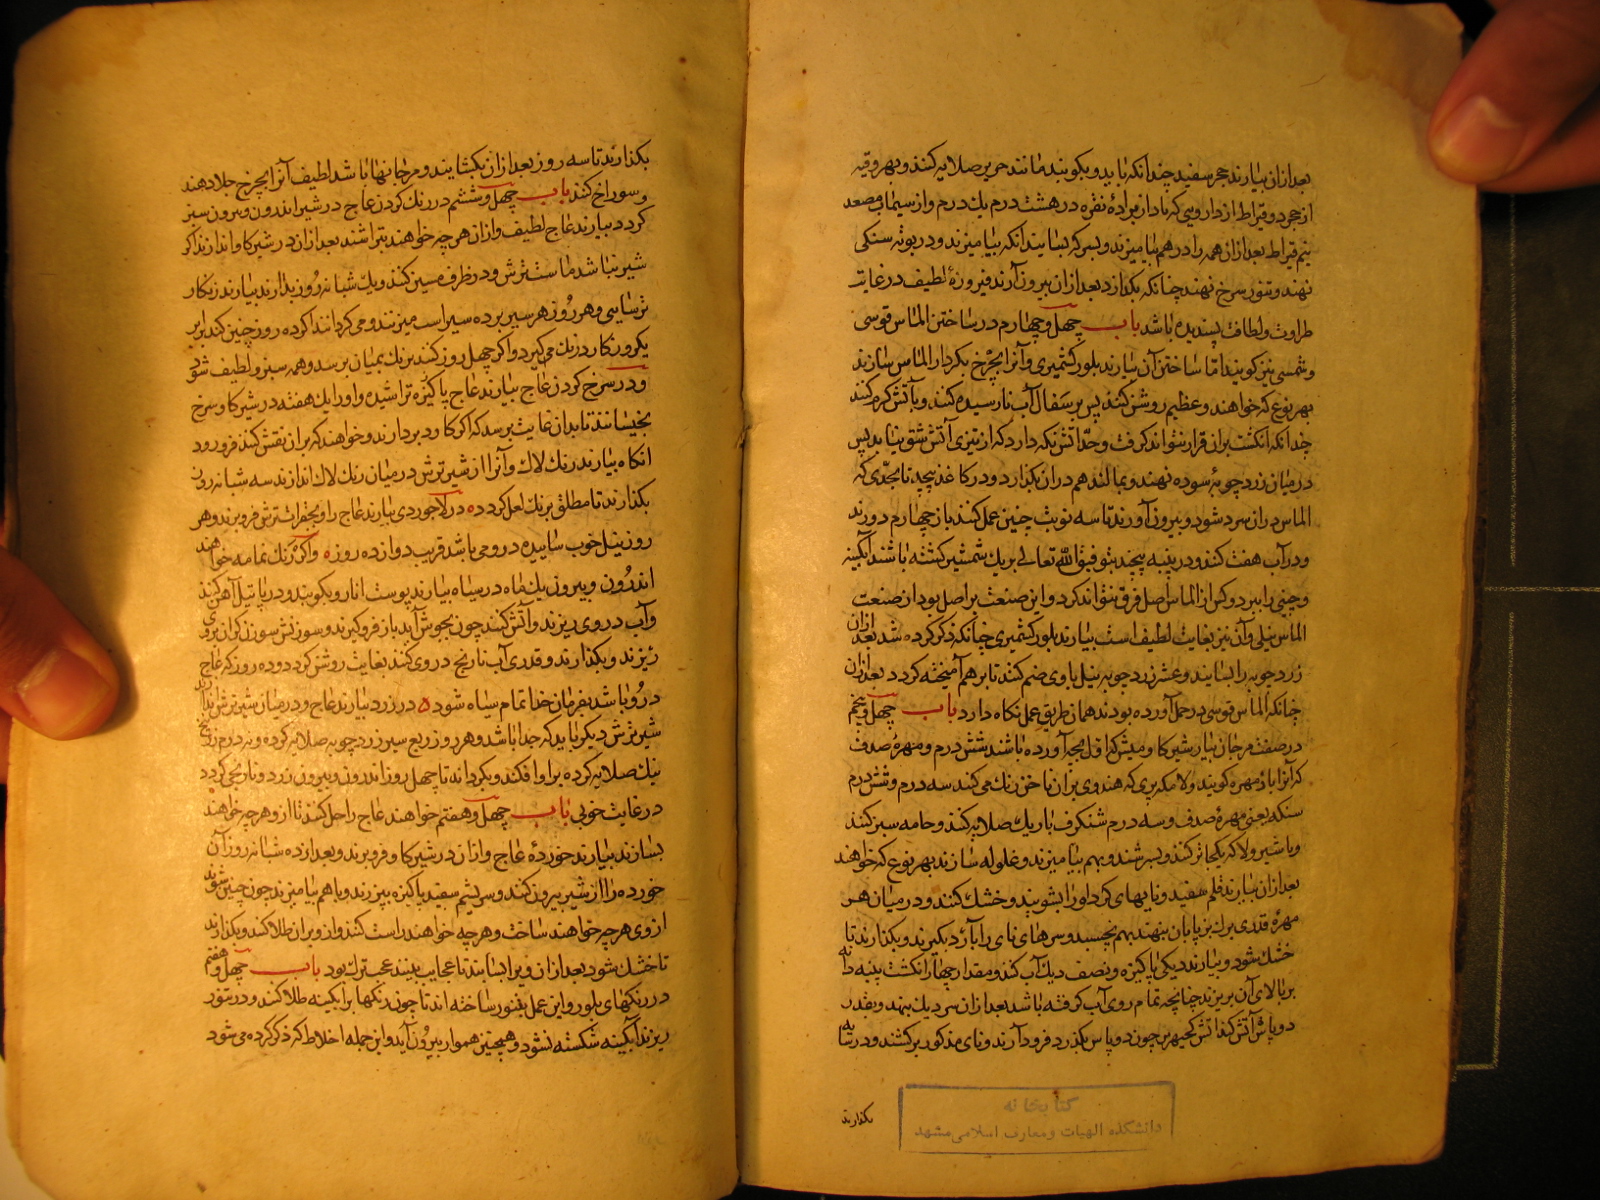 بعد ازان بیارند حجر سفید چندانکه باید و بکوبند مانند حریر صلایه کنند و بهر وقیه
از حجر دو قیراط از داروئی که با دار براده نقره در هشت درم یك درم و از سیماب مصعد
نیم قیراط بعد ازان همه را در هم بیامیزند و بسرکه بسایند آنکه بیامیزند و در بوته سنکی
نهند و تنور سرخ نهند چنانکه بکدازد بعد ازان بیرون آرند فیروزۀ لطیف در غایت
طراوت و لطافت پسندیده باشد باب چهل و چهارم در ساختن الماس قوسی
و شمسی نیز کویند اما ساختن آن بیارند بلور کشمیری و آنرا بچرخ بکردار الماس سازند
بهر نوع که خواهند و عظیم روشن کنند پس بر سفال آب نارسیده کنند و بآتش کرم کنند
چندانکه انکشت بران قرار نتواند کرفت و حد آتش نکه دارد که از تیزی آتش شق نیابد پس
در میان زردچوبۀ سوده نهند و بمالند هم دران بکذارد و در کاغذ پیچد تا بحدی که
الماس دران سرد شود و بیرون آورند تا سه نوبت چنین عمل کنند باز چهارم دورند
و در آب هفت کنند و در پنبه پیچند بتوفیق الله تعالی بر یك شمشیر کشته باشند آبکینه
و چینی را ببرد و کس از الماس اصل فرق نتواند کرد و این صنعت بر اصل بود ان صنعت
الماس نیلی و آن نیز بغایت لطیف است بیارند بلور کشمیری چنانکه ذکر کرده شد بعد ازان
زردچوبه را بسایند و عشر زردچوبه نیل با وی ضم کنند تا بر هم آمیخته کردد بعد ازان
چنانکه الماس قوسی در حل آورده بودند همان طریق عمل نکاه دارد باب چهل و پنجم
در صفت مرجان بیارند شیر کاومیش که اول بچه آورده باشند شش درم و مهرۀ صدف
که آنرا باد مهره کویند و لامکه پری که هندوی بران ناخن رنك می کنند سه درم و شش درم
سنکه یعنی مهرۀ صدف و سه درم شنکرف باریك صلایه کنند و جامه سبز کنند
و با شیر و لاکه یکجا تر کنند و بسرشند و بهم بیامیزند و غلوله سازند بهر نوع که خواهند
بعد ازان بیارند قلم سفید و نایهای کرد او را بشویند و خشك کنند و در میان هر
مهرۀ قدری برك بزیان بنهند بهم نچسبد و سرهای نای را بآرد بکیرند و بکذارند تا
خشك شود و بیارند دیکی پاکیزه و نصف دیك آب کنند و مقدار چهار انکشت پنبه دانه
بر بالای آن بریزند چنانچه تمام روی آب کرفته باشد بعد ازان سر دیك بنهد و بقدر
دو پاس آتش کند آتش چون دو پاس بکذرد فرود آرند و نای مذکور برکشند و در سایه
بکذارند
کتابخانه
دانشکده الهیات و معارف اسلامی مشهد
بکذارند تا سه روز بعد ازان بکشایند و مرجانها باشد لطیف آنرا بچرخ جلا دهند
و سوراخ کنند باب چهل و ششم در رنك کردن عاج در شیر اندرون و بیرون سبز
کردد بیارند عاج لطیف و ازان هر چه خواهند بتراشند بعد ازان در شیر کاو اندازند اکر
شیر نباشد ماست ترش و در ظرف مسین کنند و یك شبانه روز بدارند بیارند زنکار
ترسایی و هر روز هر سیر برده سیر است میزنند و می کردانند تا کرده روز چنین کند برابر
یکروزنکار رنك می کیرد و اکر چهل روز کنند برنك بمیان برسد و همه سبز و لطیف شود
و در سرخ کردن عاج بیارند عاج پاکیزه تراشیده و او را یك هفته در شیر کاو سرخ
بخیسانند تا بدان نهایت برسد که اکر کارد بردارند و خواهند که بران نقش کنند فرو رود
آنکاه بیارند رنك لاك و آنرا از شیر ترش در میان رنك لاك اندازند سه شبانه روز
بکذارند تا مطلق برنك لعل کردد در لاجوردی بیارند عاج را و بجغرات ترش فرو برند و هر
روز نیل خوب ساییده در وی باشد قریب دوازده روزه و اکر رنك تمامه خواهند
اندرون و بیرون یك ماه در سیاه بیارند پوست انار و بکوبند و در پاتیل آهن کنند
و آب در وی ریزند و آتش کنند چون بجوش آید باز فرو کیرند و سوزنش سوزن کران برو
ریزند و بکذارند و قدری آب نارنج در وی کنند بغایت روشن کردد و ده روز که عاج
در و باشد بفرمان خدا تمام سیاه شود در زرد بیارند عاج و در میان شیر ترش اندازند
شیر ترش دیکر باید که جدا باشد و هر روز ربع سیر زردچوبه صلایه کرده و نه درم زرنیخ
نیك صلایه کرده بر او افکند و بکرداند تا چهل روز اندرون و بیرون زرد و نارنجی کردد
در غایت خوبی باب چهل و هفتم خواهند عاج را حل کنند تا از و هر چه خواهند
بسازند بیارند خوردۀ عاج و ازان در شیر کاو فرو برند و بعد از ده شبانه روز آن
خورده را از شیر بیرون کنند و سریشم سفید پاکیزه بپزند و با هم بیامیزند چون چنین شود
از وی هر چه خواهند ساخت و هر چه خواهند راست کنند و از و بران طلا کنند و بکذارند
تا خشك شود بعد ازان و یرا بسایند تا عجایب بینند عجب ترك بود باب چهل و هفتم
در رنکهای بلور و این عمل بتنور ساخته اند تا چون رنکها بر آبکینه طلا کنند و در تنور
ریزند آبکینه شکسته نشود و همچنین هموار بیرون آید و این جمله اخلاط که ذکر کرده می شود